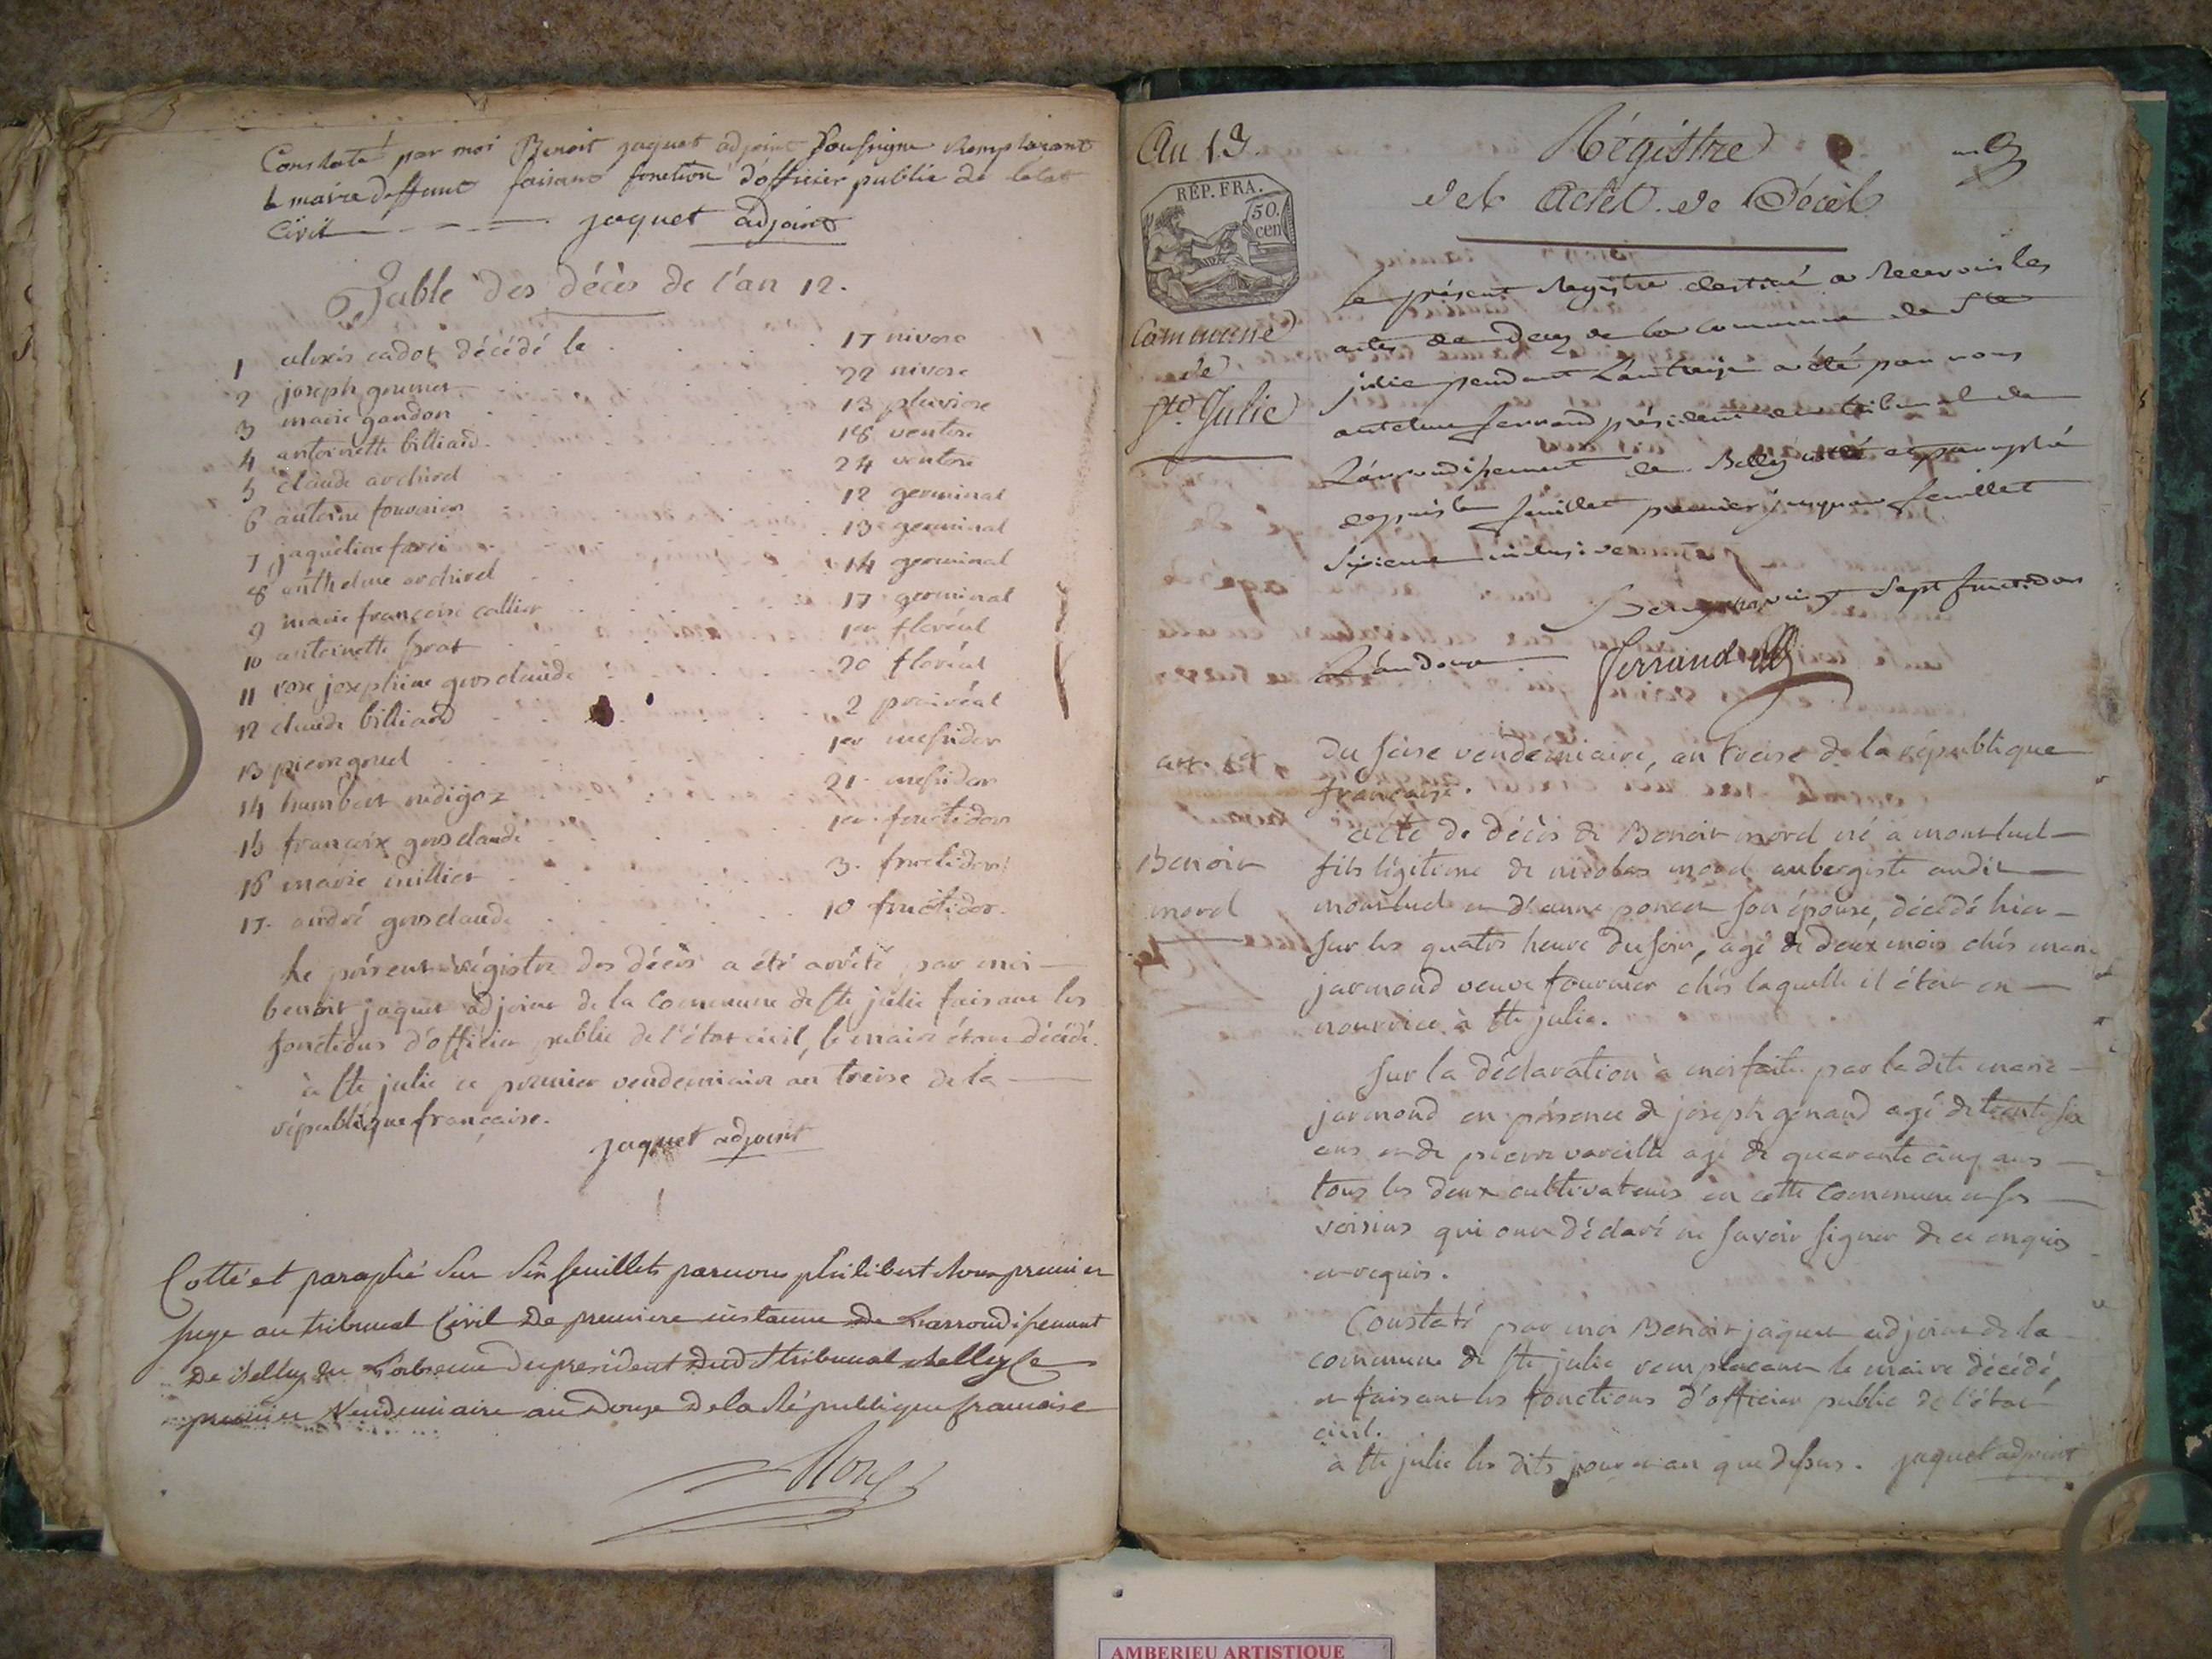 Constaté par moi Benoit jaquet adjoint Soussigne Remplacant
le maire deffunt faisant fonction d'officier public de letat
Civil jaquet adjoint
Table des décès de l'an 12.
1 alexis cadot décédé le 17 nivose
2 joseph 22 nivose
3 marie gandon 13 pluviose
4 antoinette billiard 18 ventose
5 claude archirel 24 ventose
6 antoine 12 germinal
7 jaqueline 13 germinal
8 anthelme archirel 14 germinal
9 marie françoise 17 germinal
10 antoinette 1er floréal
11 rose josephine grosclaude 20 floréal
12 claude billiard 2 prairéal
13 pierre 1er messidor
14 humbert 21 messidor
15 françoix grosclaude 1er fructidor
16 marie 3 fructidor
17 andré grosclaude 10 fructidor
Le présent régistre des décès a été arrêté par moi
benoit jaquet adjoint de la Commune de ste julie faisant les
fonctions d'officier public de l'état civil, le maire étant décédé.
à ste julie ce premier vendemiaire an treise de la
république française.
jaquet adjoint
Cotté et paraphé sur Six feuillets par nous philibert premier
juge au tribunal Civil De premiere instance De Larrondissement
De Belley en Labsence Du president Dud. tribunal Belley le
premier Vendemiaire an Douze De la République francaise
An 13.
RÉP. FRA.
50.
cen
Commune
de
Ste. Julie
Régistre
des Actes de Décès
Le présent Registre destiné a Recevoir les
actes de Deces de la commune de Ste
julie pendant L'an treize a été par nous
antelme ferrand président du tribunal de
L'arrondissement de Belley coté et paraphé
depuis le feuillet premier jusqu'au feuillet
Sixieme inclusivement
Belley vingt Sept fructidor
L'an Douze Ferrand
art. 1er Du seise vendemiaire, an treise de la république
française.
acte de décès de Benoit morel né à montluel
Benoit fils légitime de nicolas morel aubergiste audit
morel montluel et d'anne poncet son épouse, décédé hier
sur les quatre heure du soir, agé de deux mois chés marie
jarmond veuve fournier chés laquelle il étoit en
nourrice à ste julie.
Sur la déclaration à moi faite par la dite marie
jarmond en présence de joseph genaud agé de trente six
ans et de pierre vareille agé de quarante cinq ans
tous les deux cultivateurs en cette Commune et ses
voisins qui ont déclaré ne savoir signer de ce enquis
et requis.
Constaté par moi Benoit jaquet adjoint de la
commune de ste julie remplacant le maire décédé
et faisant les fonctions d'officier public de l'état
civil.
à ste julie les dits jour et an que dessus. jaquet adjoint
AMBERIEU ARTISTIQUE